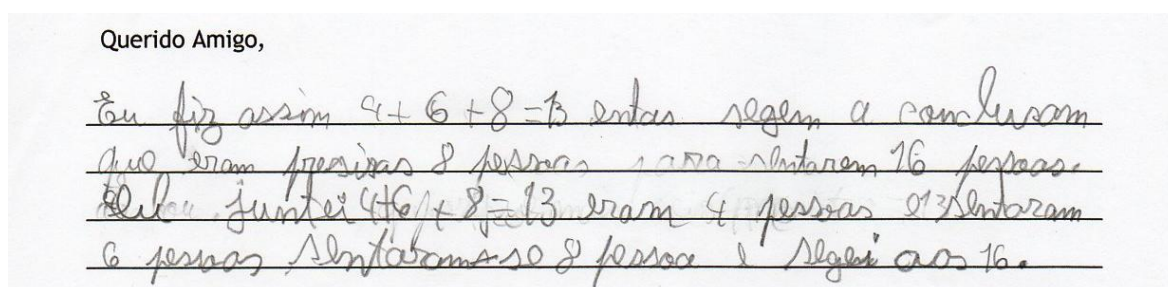 Querido Amigo,
Eu fiz assim 4+6+8=13 entas segem a conclusam
que eram presisas 8 pessoas para sentarem 16 pessoas.
juntei 4+6+8=13 eram 4 pessoas sentaram
6 pessoas sentaram-se 8 pessoa e segei aos 16.